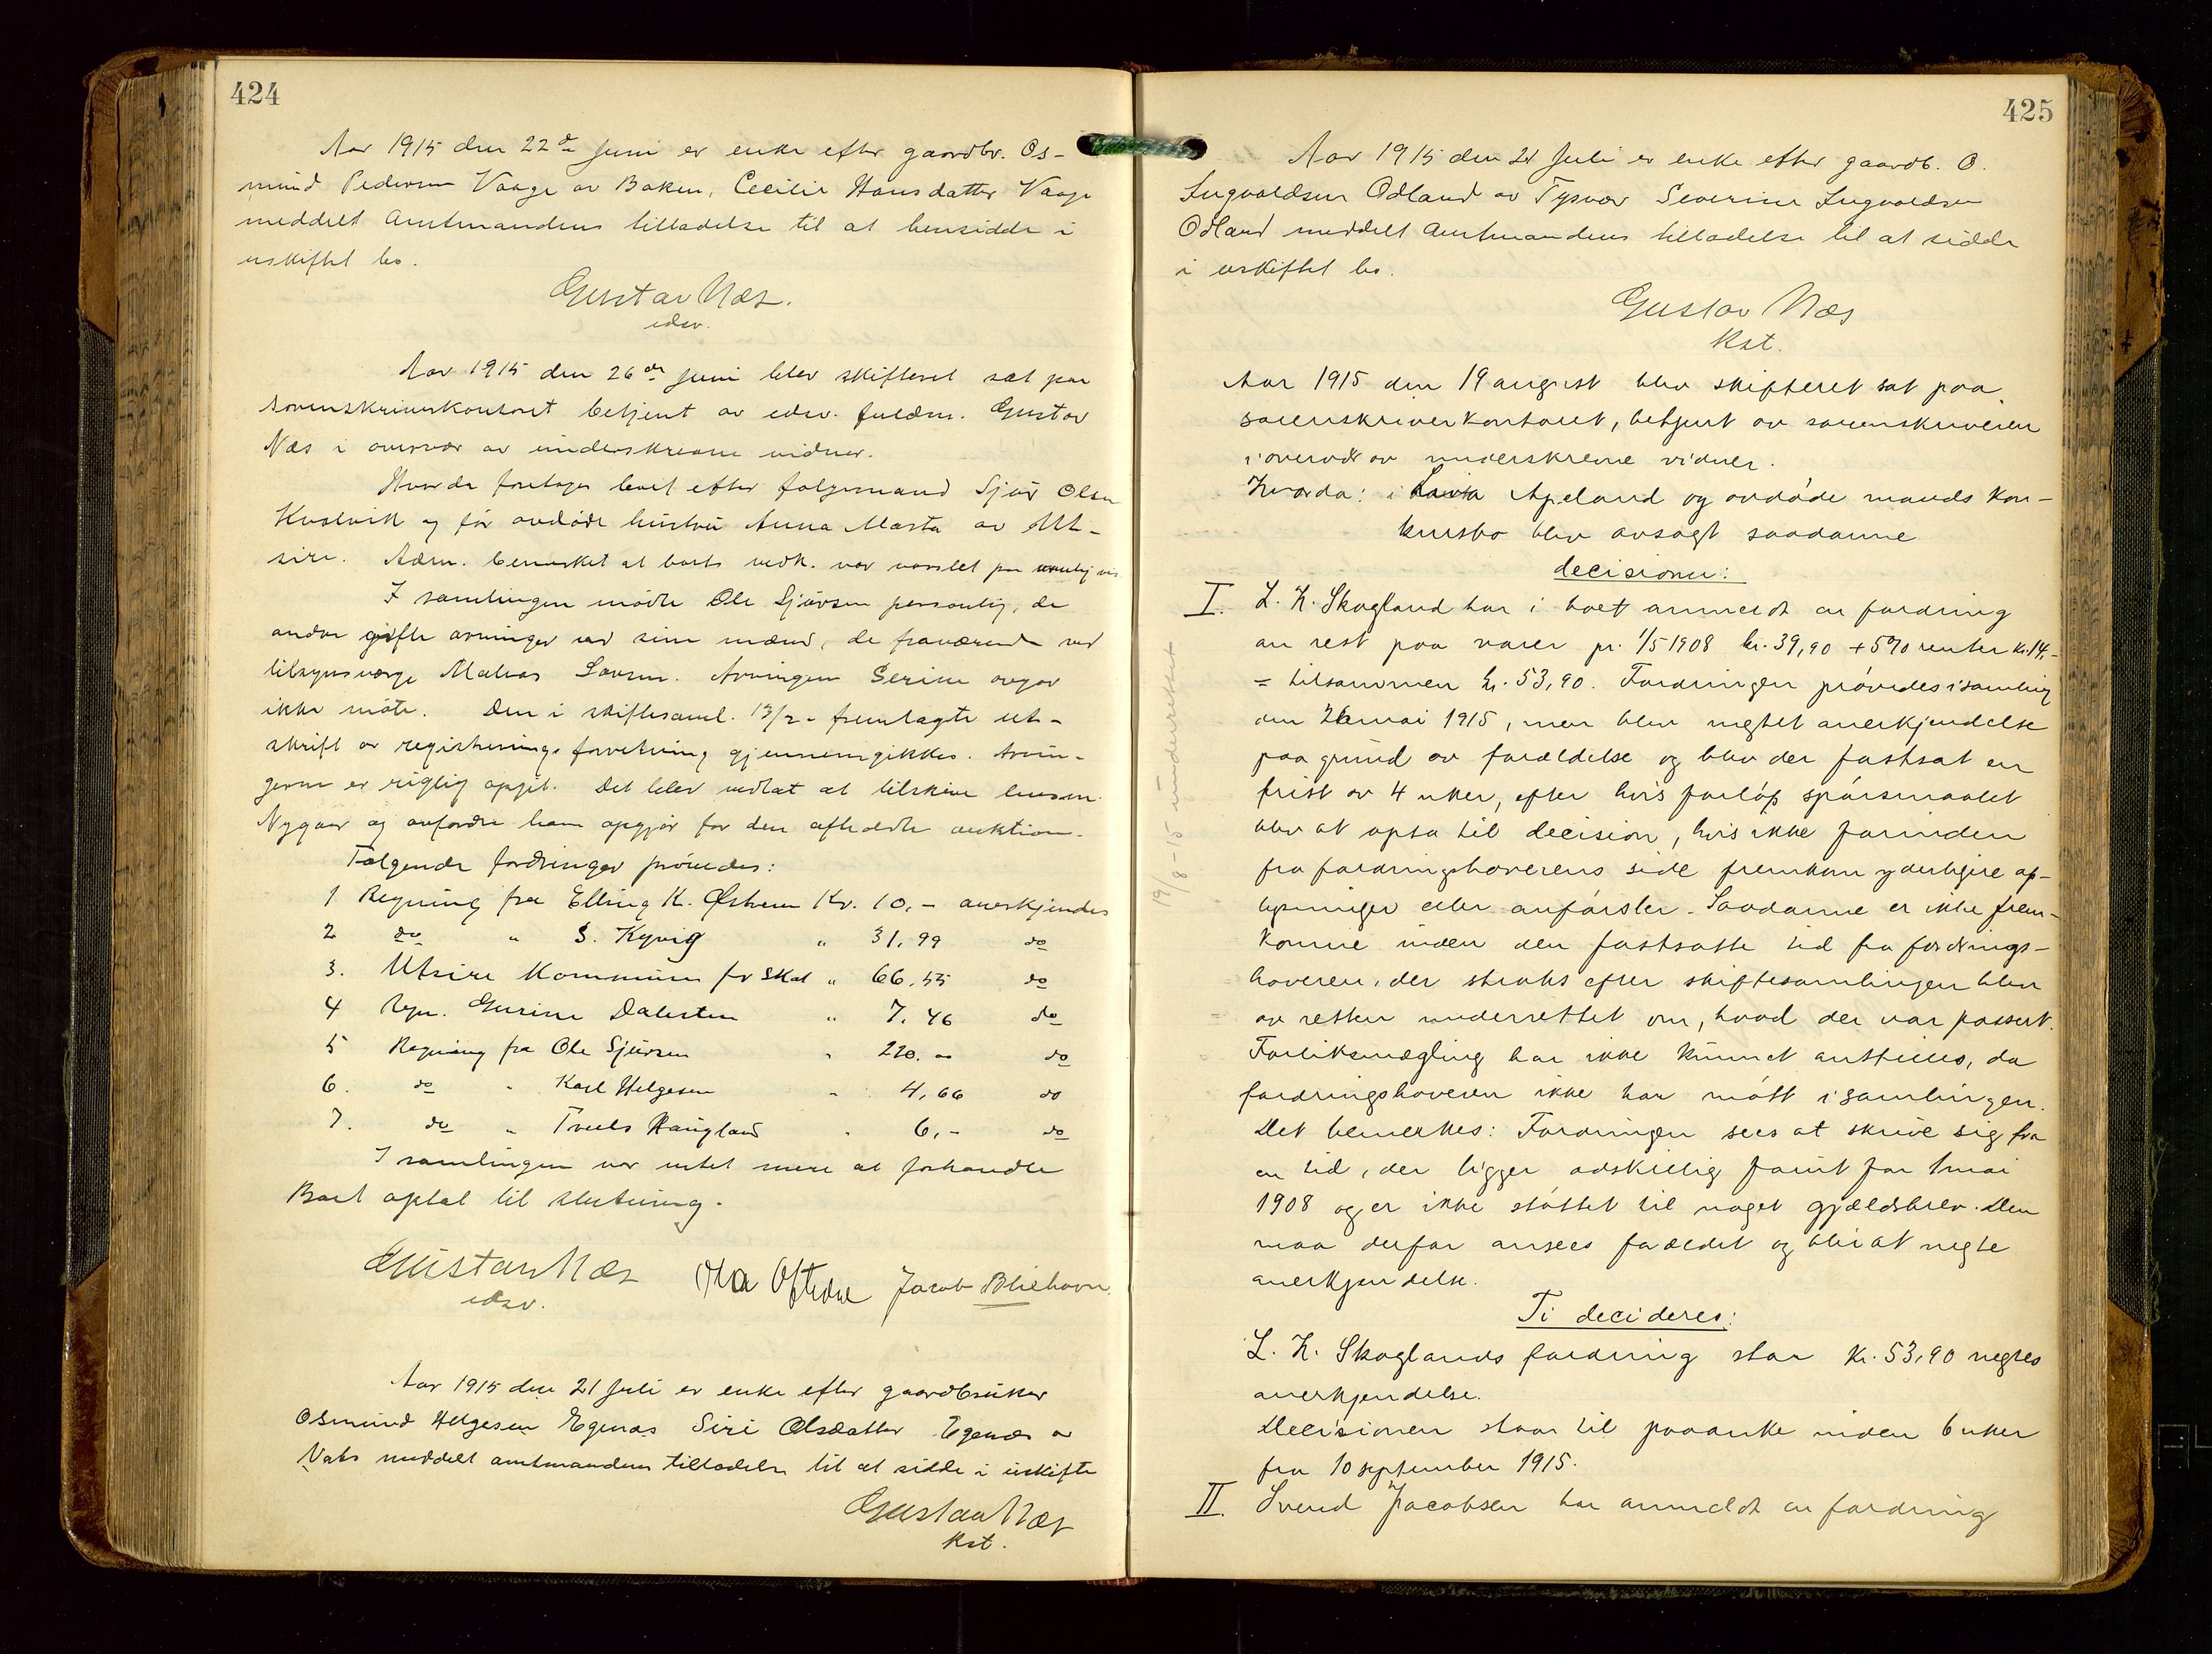 424
Aar 1915 den 22de Juni er enke efter gaardbr. Os-
mund Pedersen Vaage av Boken, Cecilie Hansdatter Vaage
meddelt Amtmandens tilladelse til at hensidde i
uskiftet bo.
Gustav Næs.
edsv.
Aar 1915 den 26de Juni blev skifteret sat paa
sorenskriverkontoret betjent av edsv. fuldm. Gustav
Næs i overvær av underskrevne vidner.
Hvorda foretoges boet efter følgemand Sjur Olsen
Kvalvik og før avdøde hustru Anna Marta av Ut-
sire. Adm. bemerket at boets vedk. var varslet paa vanlig vis
I samlingen mødte Ole Sjursen personlig, de
andre gifte arvinger ved sine mænd, de fraværende ved
tilsynsværge Matias Larsen. Arvingen Serine avgav
ikke møte. Den i skiftesaml. 13/2 - fremlagte ut-
skrift av registreringsforretning gjennemgikkes. Arvin-
gerne er rigtig opgit. Det blev vedtat at tilskrive lensm.
Nygaar og anfordre ham opgjør for den afholdte auktion.
Følgende fordringer prøvedes:
1 Regning fra Elling K. Østrem Kr. 10,- anerkjendes
2 do " S. Kyvig " 31,99 do
3. Utsire Kommune for skat " 66,55 do
4 Regn. Gurine Dalesten " 7,46 do
5 Regning fra Ole Sjursen " 220.00 do
6. do " Karl Helgesen " 4,66 do
7. do " Truls Haugland " 6,- do
I samlingen var intet mere at forhandle
Boet optat til slutning.
Gustav Næs
edsv.
Ola Oftedal Jacob Bliehovn
Aar 1915 den 21 Juli er enke efter gaardbruker
Osmund Helgesen Egenæs Siri Olsdatter Egenæs av
Vats meddelt amtmandens tilladelse til at sidde i uskifte
Gustav Næs
kst.
425
Aar 1915 den 21 Juli er enke efter gaardb. O.
Ingvaldsen Odland av Tysvær Severine Ingvaldsen
Odland meddelt Amtmandens tilladelse til at sidde
i uskiftet bo.
Gustav Næs
kst.
Aar 1915 den 19 august blev skifteret sat paa
sorenskriverkontoret, betjent av sorenskriveren
i overvær av underskrevne vidner.
Hvorda: i Apeland og avdøde mands kon-
kursbo blev avsagt saadanne
decisioner:
I. L. H. Skogland har i boet anmeldt en fordring
en rest paa varer pr. 1/5 1908 kr. 39,90 + 5% renter kr. 14,-
= tilsammen kr. 53,90. Fordringen prøvedes i samling
den 26 mai 1915, men blev negtet anerkjendelse
paa grund av forældelse og blev der fastsat en
frist av 4 uker, efter hvis forløp spørsmaalet
blev at opta til decision, hvis ikke forinden
fra fordringshaverens side fremkom yderligere op-
lysninger eller anførsler. Saadanne er ikke frem-
komne inden den fastsatte tid fra fordrings-
haveren, der straks efter skiftesamlingen blev
av retten underrettet om, hvad der var passert.
Forliksmægling har ikke kunnet anstilles, da
fordringshaveren ikke har møtt i samlingen.
Det bemerkes: Fordringen sees at skrive sig fra
en tid, der ligger adskillig forut for 1 mai
1908 og er ikke støttet til noget gjældsbrev. Den
maa derfor ansees forældet og blir at negte
anerkjendelse.
Ti decideres:
L. H. Skoglands fordring stor kr. 53,90 negtes
anerkjendelse.
Decisionen staar til paaanke inden 6 uker
fra 10 september 1915.
II. Svend Jacobsen har anmeldt en fordring
19/8-15 underrettet